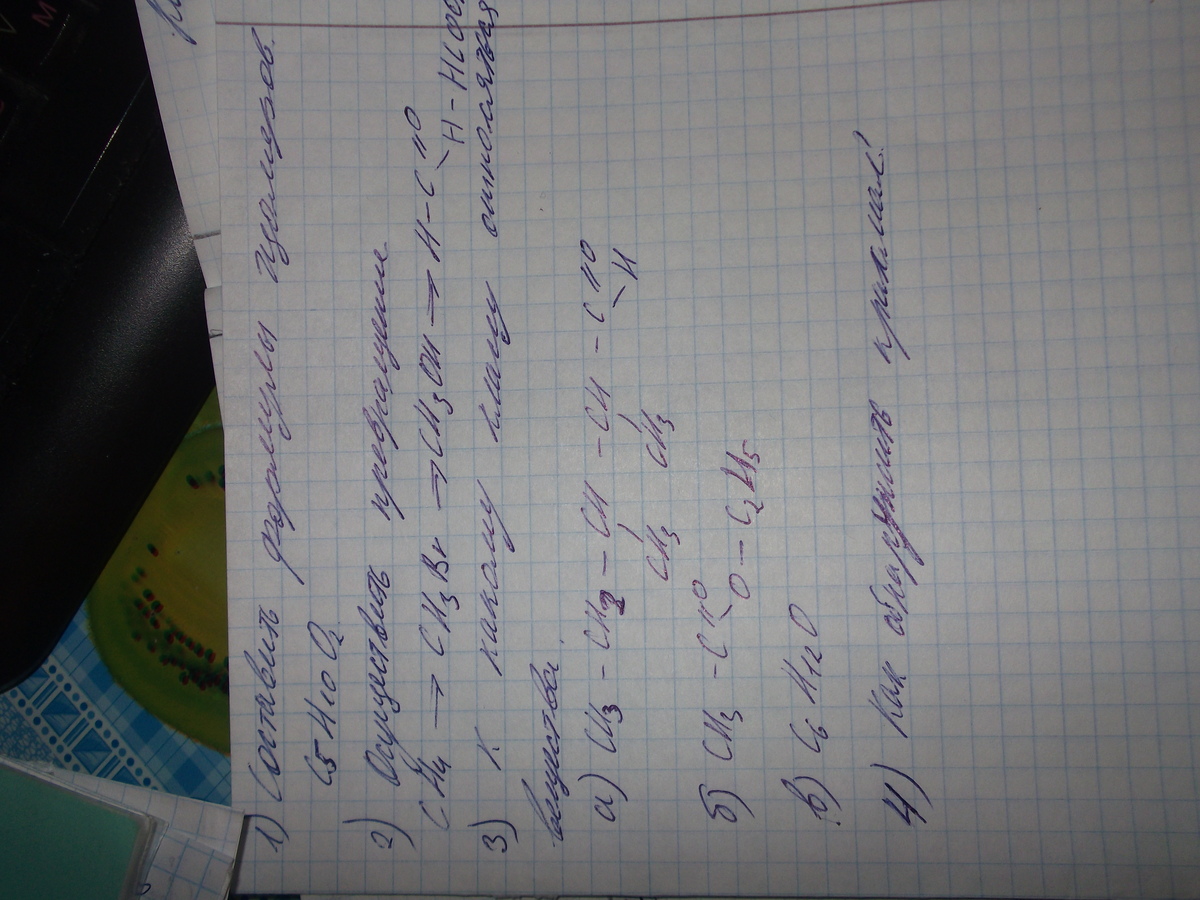 1) Составить формулы изомеров.
C5H10O2
2) Осуществить превращение
CH4 → CH3Br → CH3OH → H-C=O
H-HCOO
3) К какому классу относятся
вещества:
а) CH3-CH2-CH-CH-C=O
CH3 CH3 H
б) CH3-C=O
O-C2H5
в) C6H12O
4) Как обнаружить крахмал?